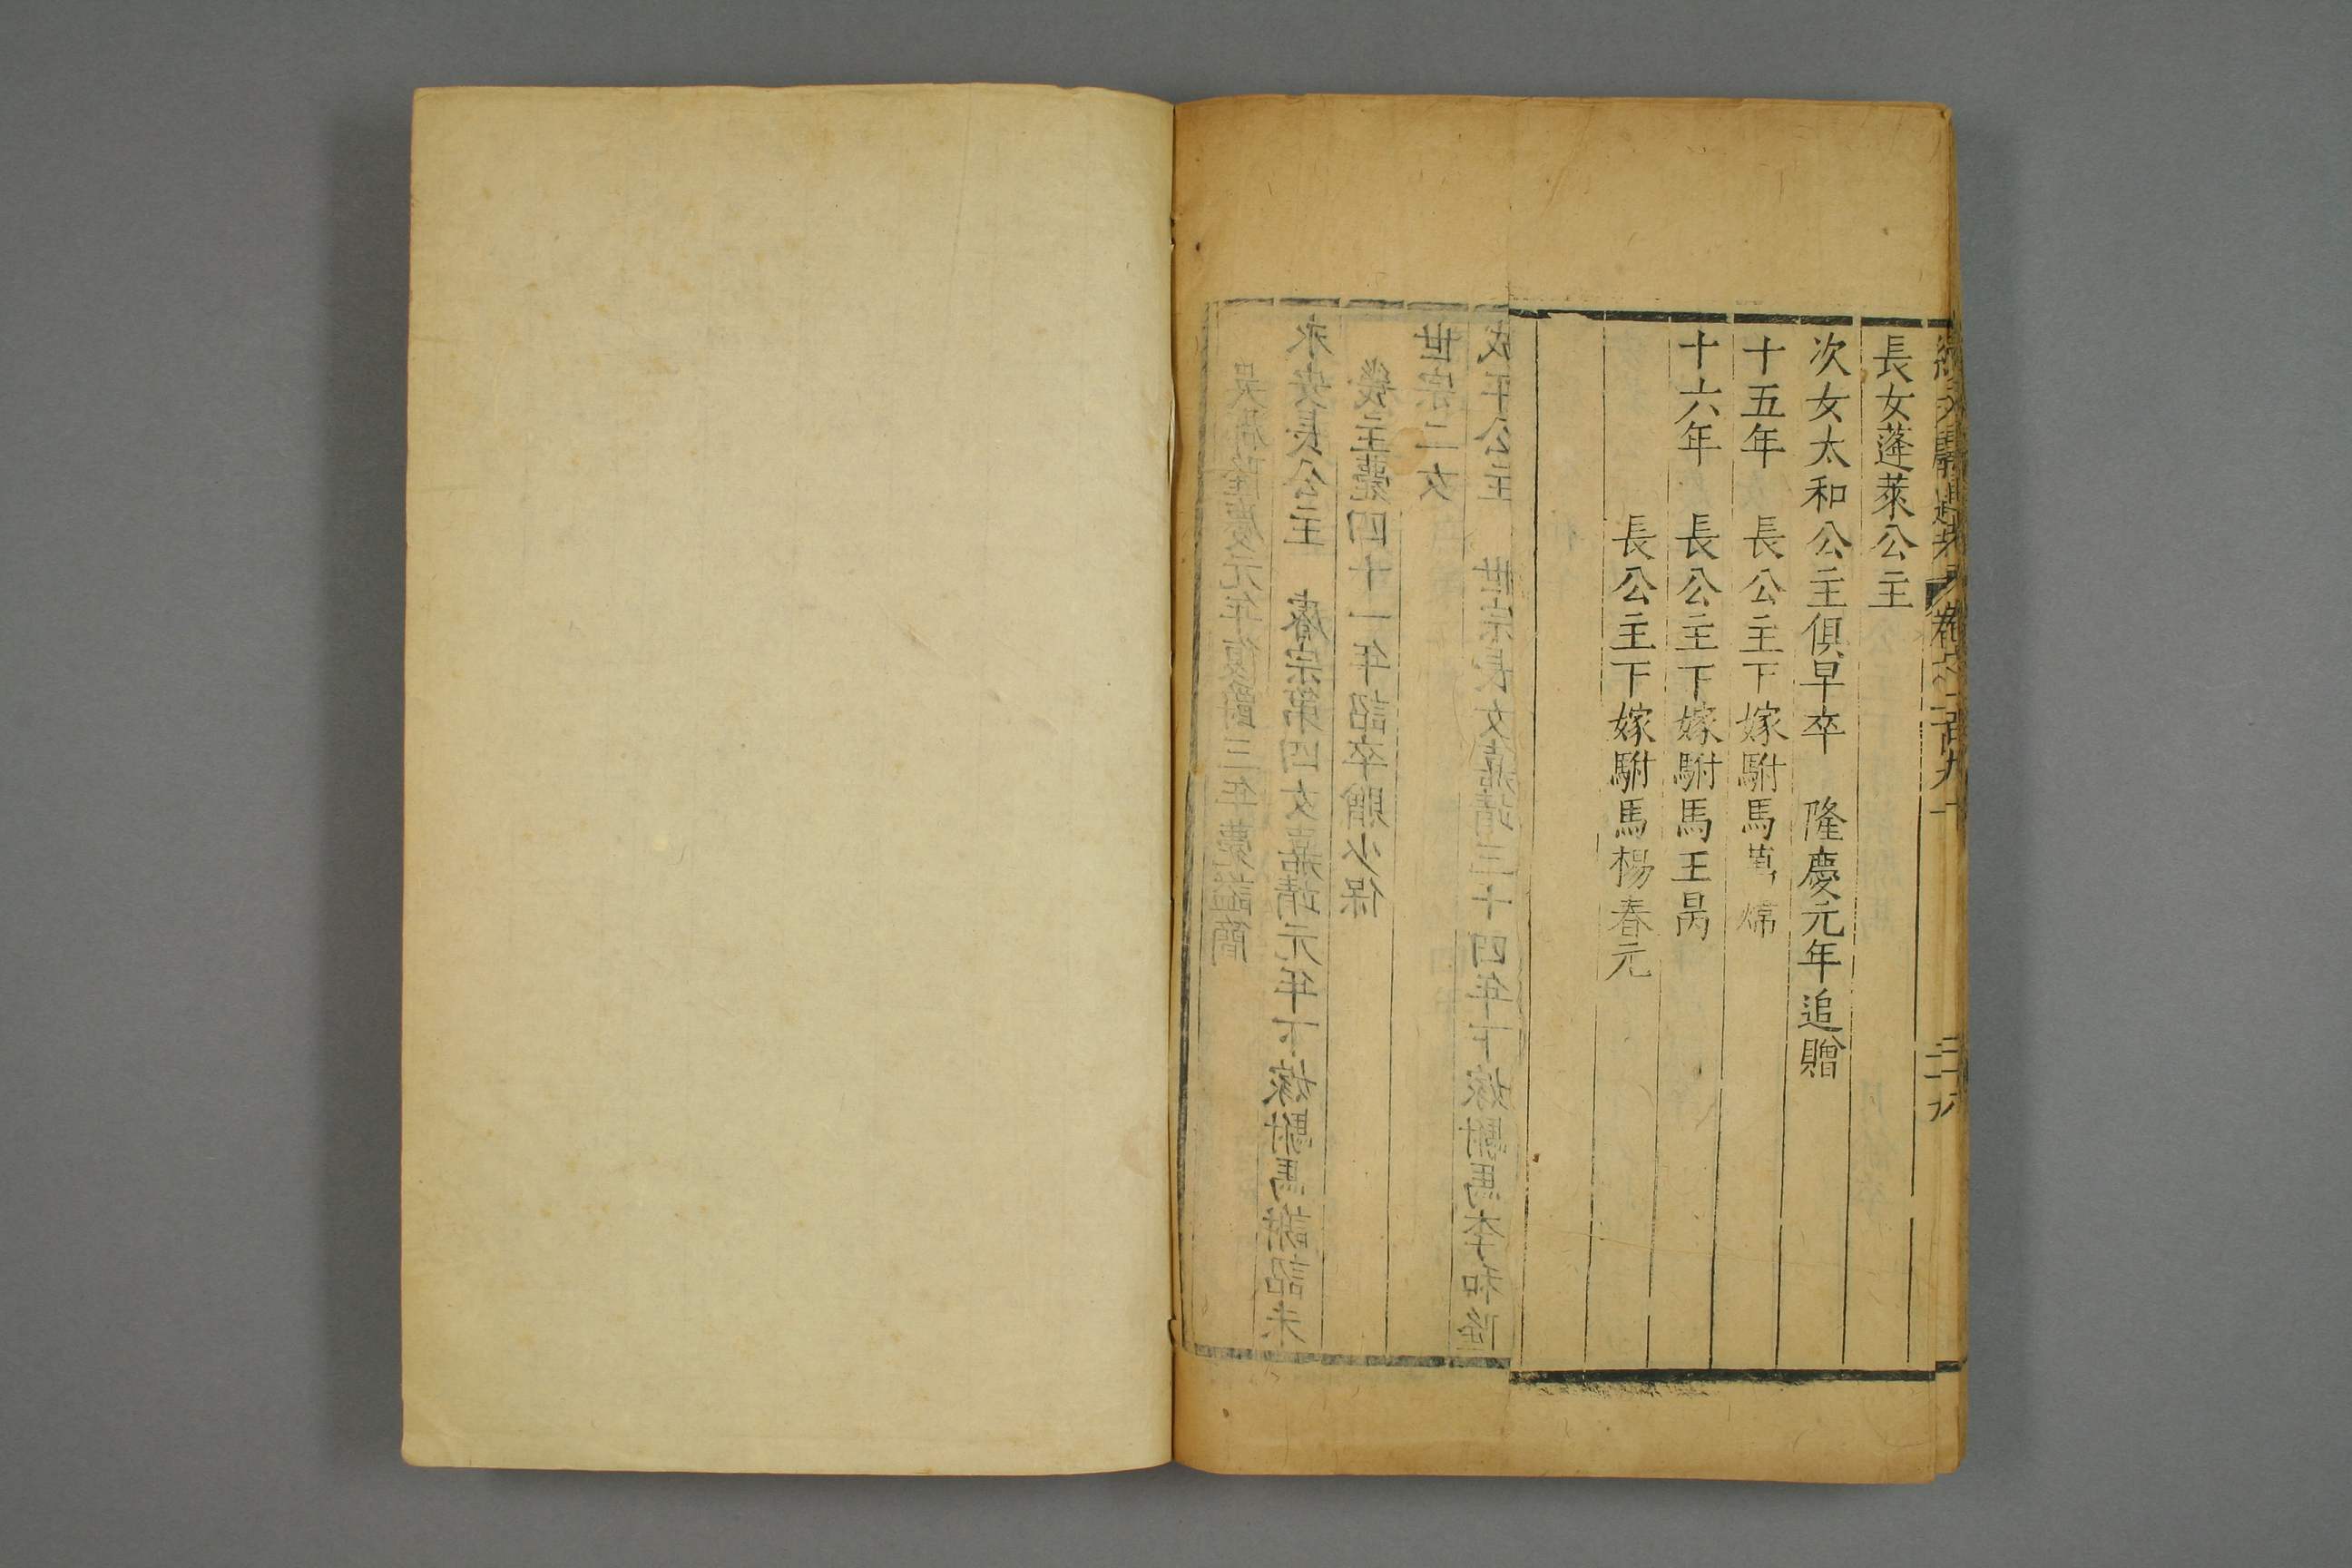 續文獻通考 卷之二百九
長女蓬萊公主
次女太和公主俱早卒　隆慶元年追贈
十五年　長公主下嫁駙馬萬煒
十六年　長公主下嫁駙馬王昺
長公主下嫁駙馬楊春元
隆慶元年復爵三年薨謚簡
永安長公主　睿宗第四女嘉靖元年下嫁駙馬謝詔未
幾主薨四十一年詔卒贈少保
世宗二女
成平公主　世宗長女嘉靖三十四年下嫁駙馬李和隆